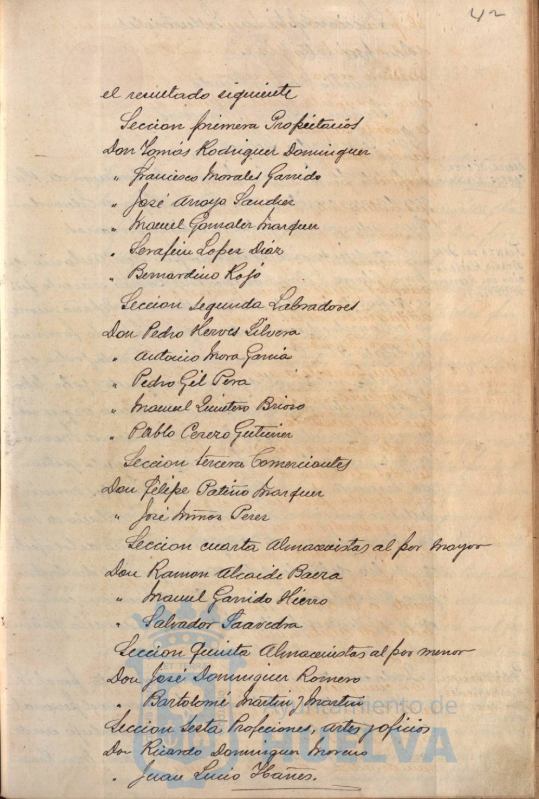 42
el resultado siguiente
Seccion primera Propietarios
Don Tomás Rodriguez Dominguez
" Francisco Morales Garrido
" José Arroyo Sanchez
" Manuel Gonzalez Marquez
" Serafin Lopez Diaz
" Bernardino Rojo
Seccion segunda Labradores
Don Pedro Herves Silvera
" Antonio Mora Garcia
" Pedro Gil Pera
" Manuel Quintero Brioso
" Pablo Cerezo Gutierrez
Seccion tercera Comerciantes
Don Félipe Patiño Marquez
" José Perez
Seccion cuarta Almacenistas al por mayor
Don Ramon Alcaide Baeza
" Manuel Garrido Hierro
" Salvador Saavedra
Seccion Quinta Almacenistas al por menor
Don José Dominguez Romero
" Bartolomé Martin y Martin
Ayuntamiento de
Seccion Sesta Profeciones, artes y oficios
HUELVA
Don Ricardo Dominguez Moreno
" Juan Lucio Ibáñes.